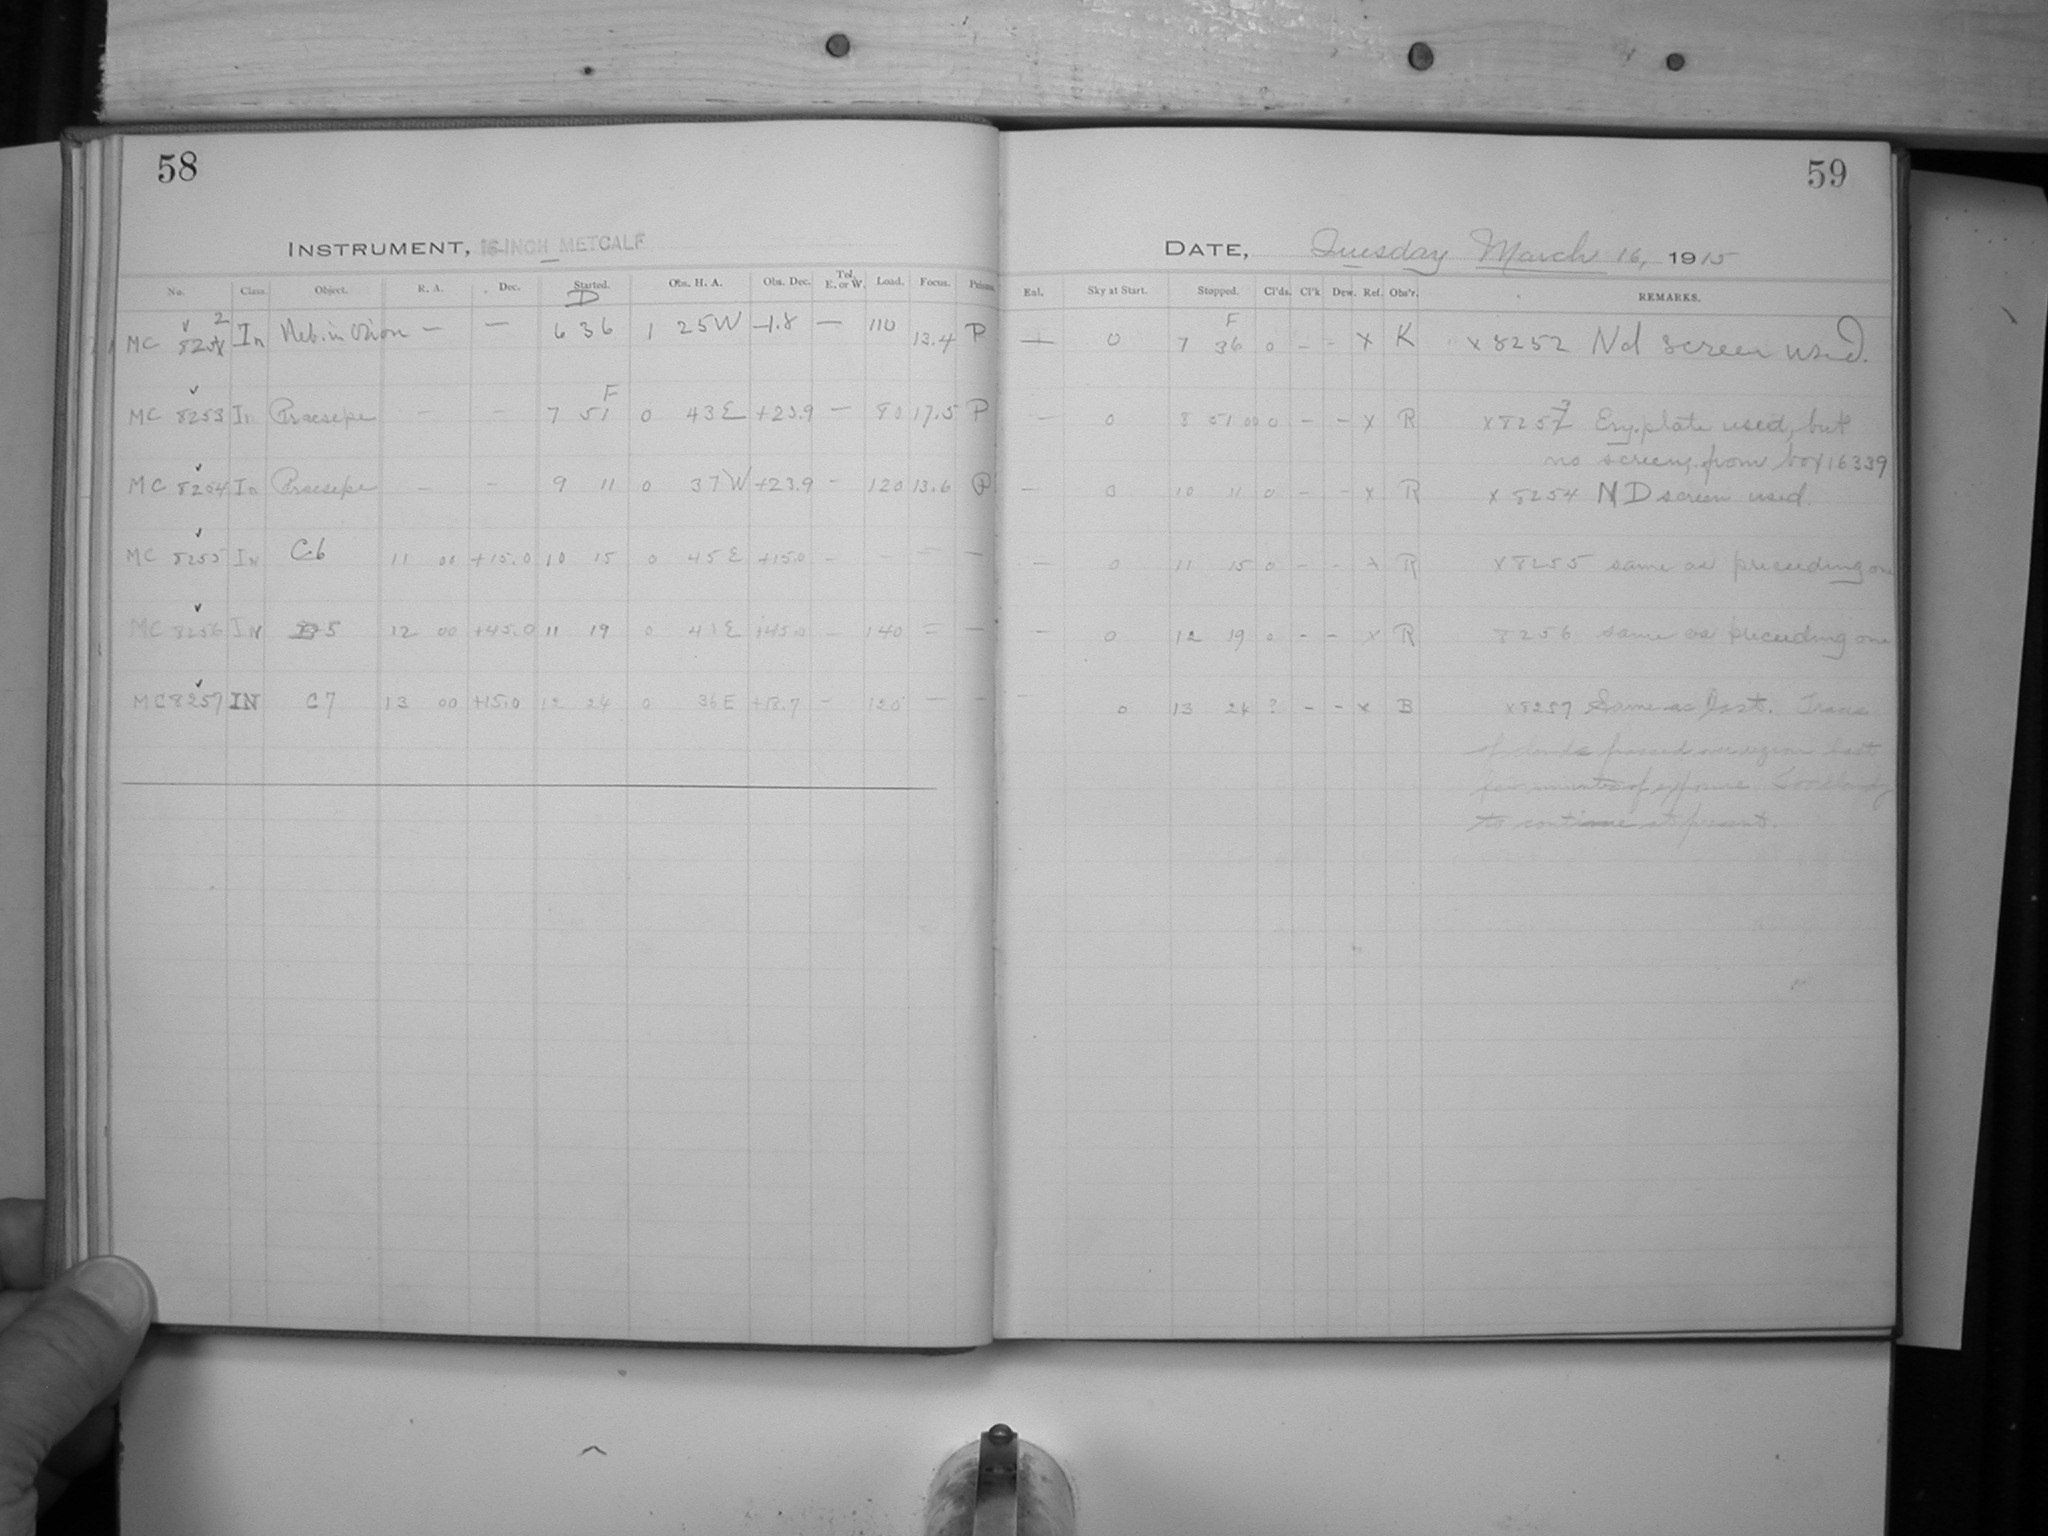 58
INSTRUMENT, 16-INCH METCALF
No. Class. Object. R. A. Dec. Started. Obs. H. A. Obs. Dec. Tel. E. or W. Load. Focus. Prisms.
D
MC 8252 In Neb. in Orion — — 6 36 1 25W -1.8 — 110 13.4 P
F
MC 8253 In Praesepe — — 7 51 0 43E +23.9 — 80 17.5 P
MC 8254 In Praesepe — — 9 11 0 37W +23.9 — 120 13.6 P
MC 8255 In C6 11 00 +15.0 10 15 0 45E +15.0 — — — —
MC 8256 IN 5 12 00 +45.0 11 19 0 41E +45.0 — 140 = —
MC 8257 IN C7 13 00 +15.0 12 24 0 36E +18.7 — 120 — —
59
DATE, Tuesday March 16, 1915
Enl. Sky at Start. Stopped. Cl'ds. Cl'k Dew. Ref. Obs'r. REMARKS.
F
— 0 7 36 0 - - x K x 8252 Nd screen used.
— 0 8 51 00 0 - - x R x 8253 Ery. plate used, but
no screen, from box 16339
— 0 10 11 0 - - x R x 8254 ND screen used.
— 0 11 15 0 - - x R x 8255 same as preceeding one
— 0 12 19 0 - - x R 8256 same as preceeding one
- 0 13 24 ? - - x B x 8257 Same as last. Trace
of clouds passed over region last
few minutes of exposure. Too cloudy
to continue at present.